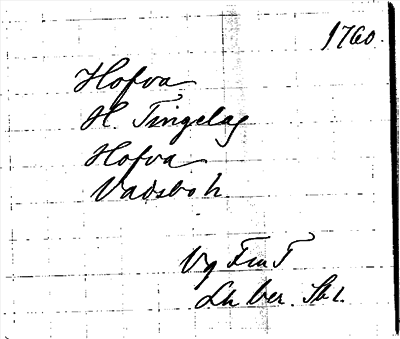 1760.
Hofva
H. Tingelag
Hofva
Vadsbo h.
Vg FmT
Lh ber. Sbl.